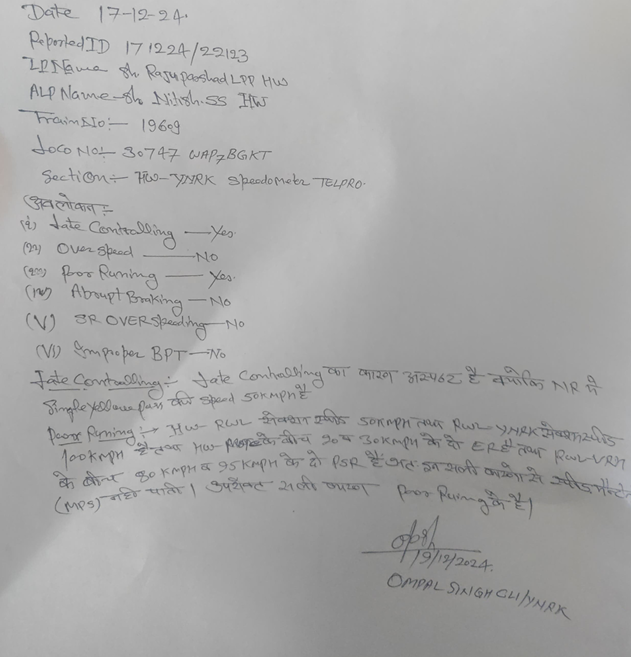 Date 17-12-24.
Reported ID 171224/22123
LPName sh Rajuparshad LPP HW
ALP Name-sh. Nitish.SS HW
Train No:- 19609
Loco No:- 30747 WAP7 BGKT
Section:- HW-YNRK Speedometer TELPRO.
अवलोकन:-
(i) Late Controlling —Yes.
(ii) Over Speed —No
(iii) Poor Runing — Yes.
(iv) Abrupt Braking —No
(V) SR OVER Speeding—No
(VI) Improper BPT—No
Late Controlling:- Late Controlling का कारण अस्पष्ट है क्योंकि NR में
Single yellow pass की speed 50KMPH है
Poor Runing:- HW RWL सेक्शन स्पीड 50KMPH तथा RWL YNRK सेक्शन स्पीड
100KMPH है तथा HW के बीच 20 व 30KMPH के दो ER है तथा RWL-VRH
के बीच 80 KMPH व 95 KMPH के दो PSR है अतः इन सभी कारणों से स्पीड
(MPS) नहीं पाती। उपरोक्त सभी कारण Poor Runing के है।
19/12/2024.
OMPAL SINGH CLI/YNRK